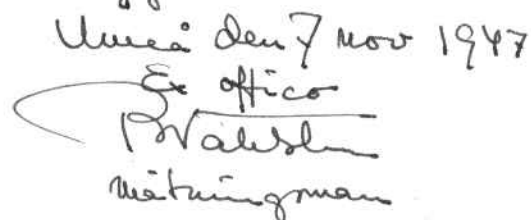 Umeå den 7 nov 1947
Ex offico
Mätningsman